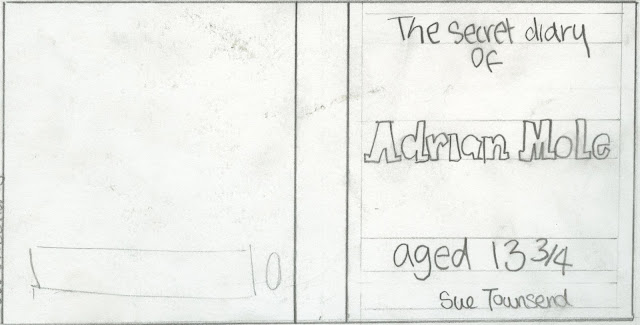 The secret diary
OF
Adrian Mole
aged 13 3/4
Sue Townsend